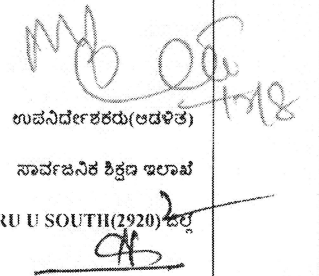 ಉಪನಿರ್ದೇಶಕರು(ಆಡಳಿತ)
ಸಾರ್ವಜನಿಕ ಶಿಕ್ಷಣ ಇಲಾಖೆ
RU U SOUTH(2920) ಜಿಲ್ಲೆ